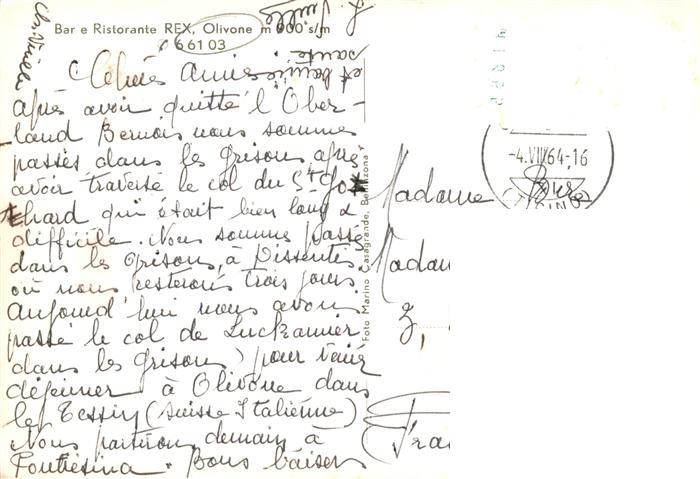 Bar e Ristorante REX, Olivone m 900 s/m
6 61 03
Chères amies
après avoir quitté l'Ober-
land Bernois nous sommes
passés dans les grisons après
avoir traversé le col du St Go
thard qui était bien long &
difficile. Nous sommes passés
dans les Grisons, à Dissentis
où nous resterons trois jours.
Aujourd'hui nous avons
passé le col de Luckmanier
dans les grisons) pour venir
déjeuner à Olivone dans
le Tessin (Suisse Italienne)
Nous partirons demain à
Pontresina. Bons baisers
et bonne
santé
Foto Marino Casagrande, Bellinzona
-4.VIII.64-16
Madame
Madam
3,
Fra